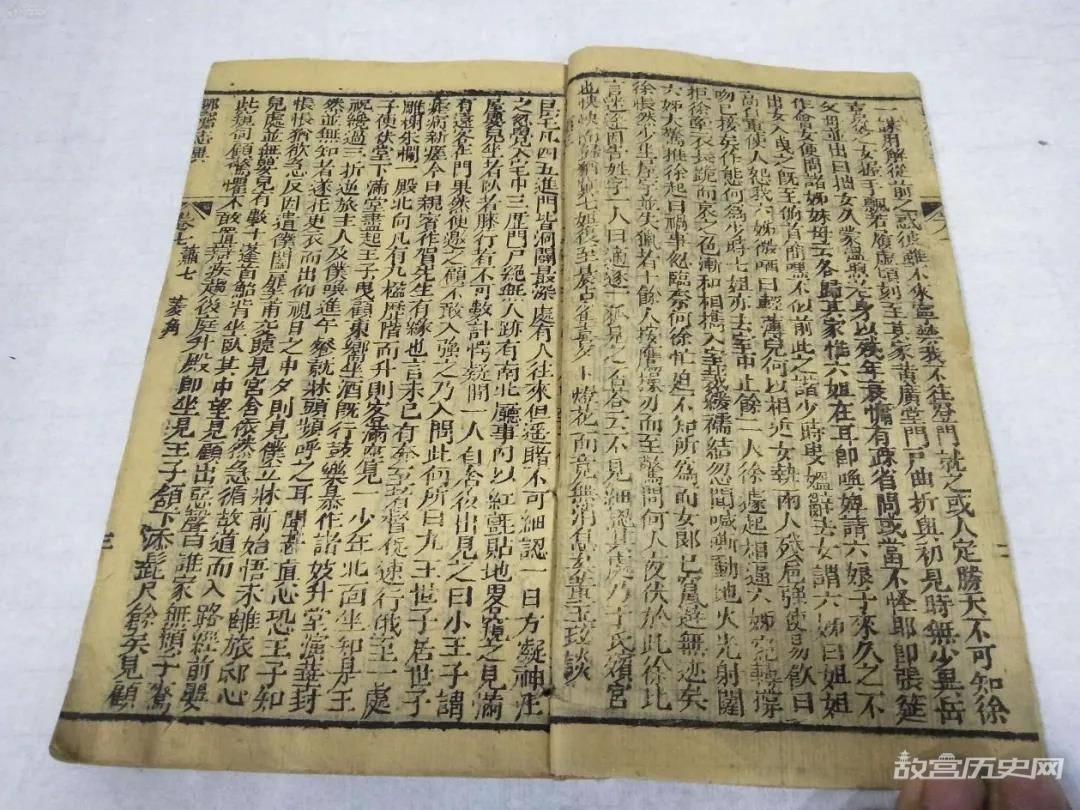 用解從前之惑彼雖不來寧禁我不往登門就之或人定勝天不可知徐
喜從之女握手飄若履虛頃刻至其家黃甍廣堂門戶曲折與初見時無少異岳
父母並出曰拙女久蒙溫煦老身以殘年衰慵有疎省問或當不怪耶即張筵
作會女便問諸姊妹母云各歸其家惟六姐在耳即喚婢請六娘子來久之不
出女入曳之既至俯首簡嘿不似前此之諧少時叟媼辭去女謂六姊曰姐姐
高自重使人怨我六姊微哂曰輕薄兒何以相近女執兩人殘卮強使易飲曰
吻已接矣作態何為少時七姐亦去室中止餘二人徐遽起相逼六姊宛轉撐
拒徐牽衣長跪而哀之色漸和相攜入室裁緩襦結忽聞喊嘶動地火光射闥
六姊大驚推徐起曰禍事忽臨奈何徐忙迫不知所為而女郎已竄避無迹矣
徐悵然少坐屋宇並失獵者十餘人按鷹操刃而至驚問何人夜伏於此徐托
言迷途因告姓字一人曰適逐一狐見之否答云不見細認其處乃于氏殯宮
也怏怏而歸猶冀七姊復至晨占雀喜夕卜燈花而竟無消息矣董玉玹談
巨宅凡四五進門皆洞闢最深處有人往來但遙睹不可細認一日方凝神注
之忽覺入宅中三歷門戶絕無人跡有南北廳事內以紅氈貼地略窺之見滿
屋嬰兒坐者臥者膝行者不可數計愕疑間一人自舍後出見之曰小王子謂
有遠客在門果然便邀之顧不敢入強之乃入問此何所曰九王世子居世子
瘧疾新瘥今日親賓作賀先生有緣也言未已有奔至者督促速行俄至一處
雕榭朱欄一殿北向凡有九楹歷階而升則客滿座見一少年北面坐知是王
子便伏堂下滿堂盡起王子曳顧東鄉坐酒既行鼓樂暴作諸妓升堂演華封
祝纔過三折逆旅主人及僕喚進午餐就牀頭頻呼之耳聞甚真心恐王子知
然並無知者遂托更衣而出仰視日之中夕則見僕立牀前始悟未離旅邸心
悵悵猶欲急反因遣僕闔扉去甫交睫見宮舍依然急循故道而入路經前嬰
兒處並無嬰兒有數十蓬首駘背坐臥其中望見顧出惡聲曰誰家無賴子來
此窺伺顧驚懼不敢置辯疾趨後庭升殿即坐見王子頷下添髭尺餘矣見顧
聊齋志異 卷七 蕭七 菱角 三
故宫历史网